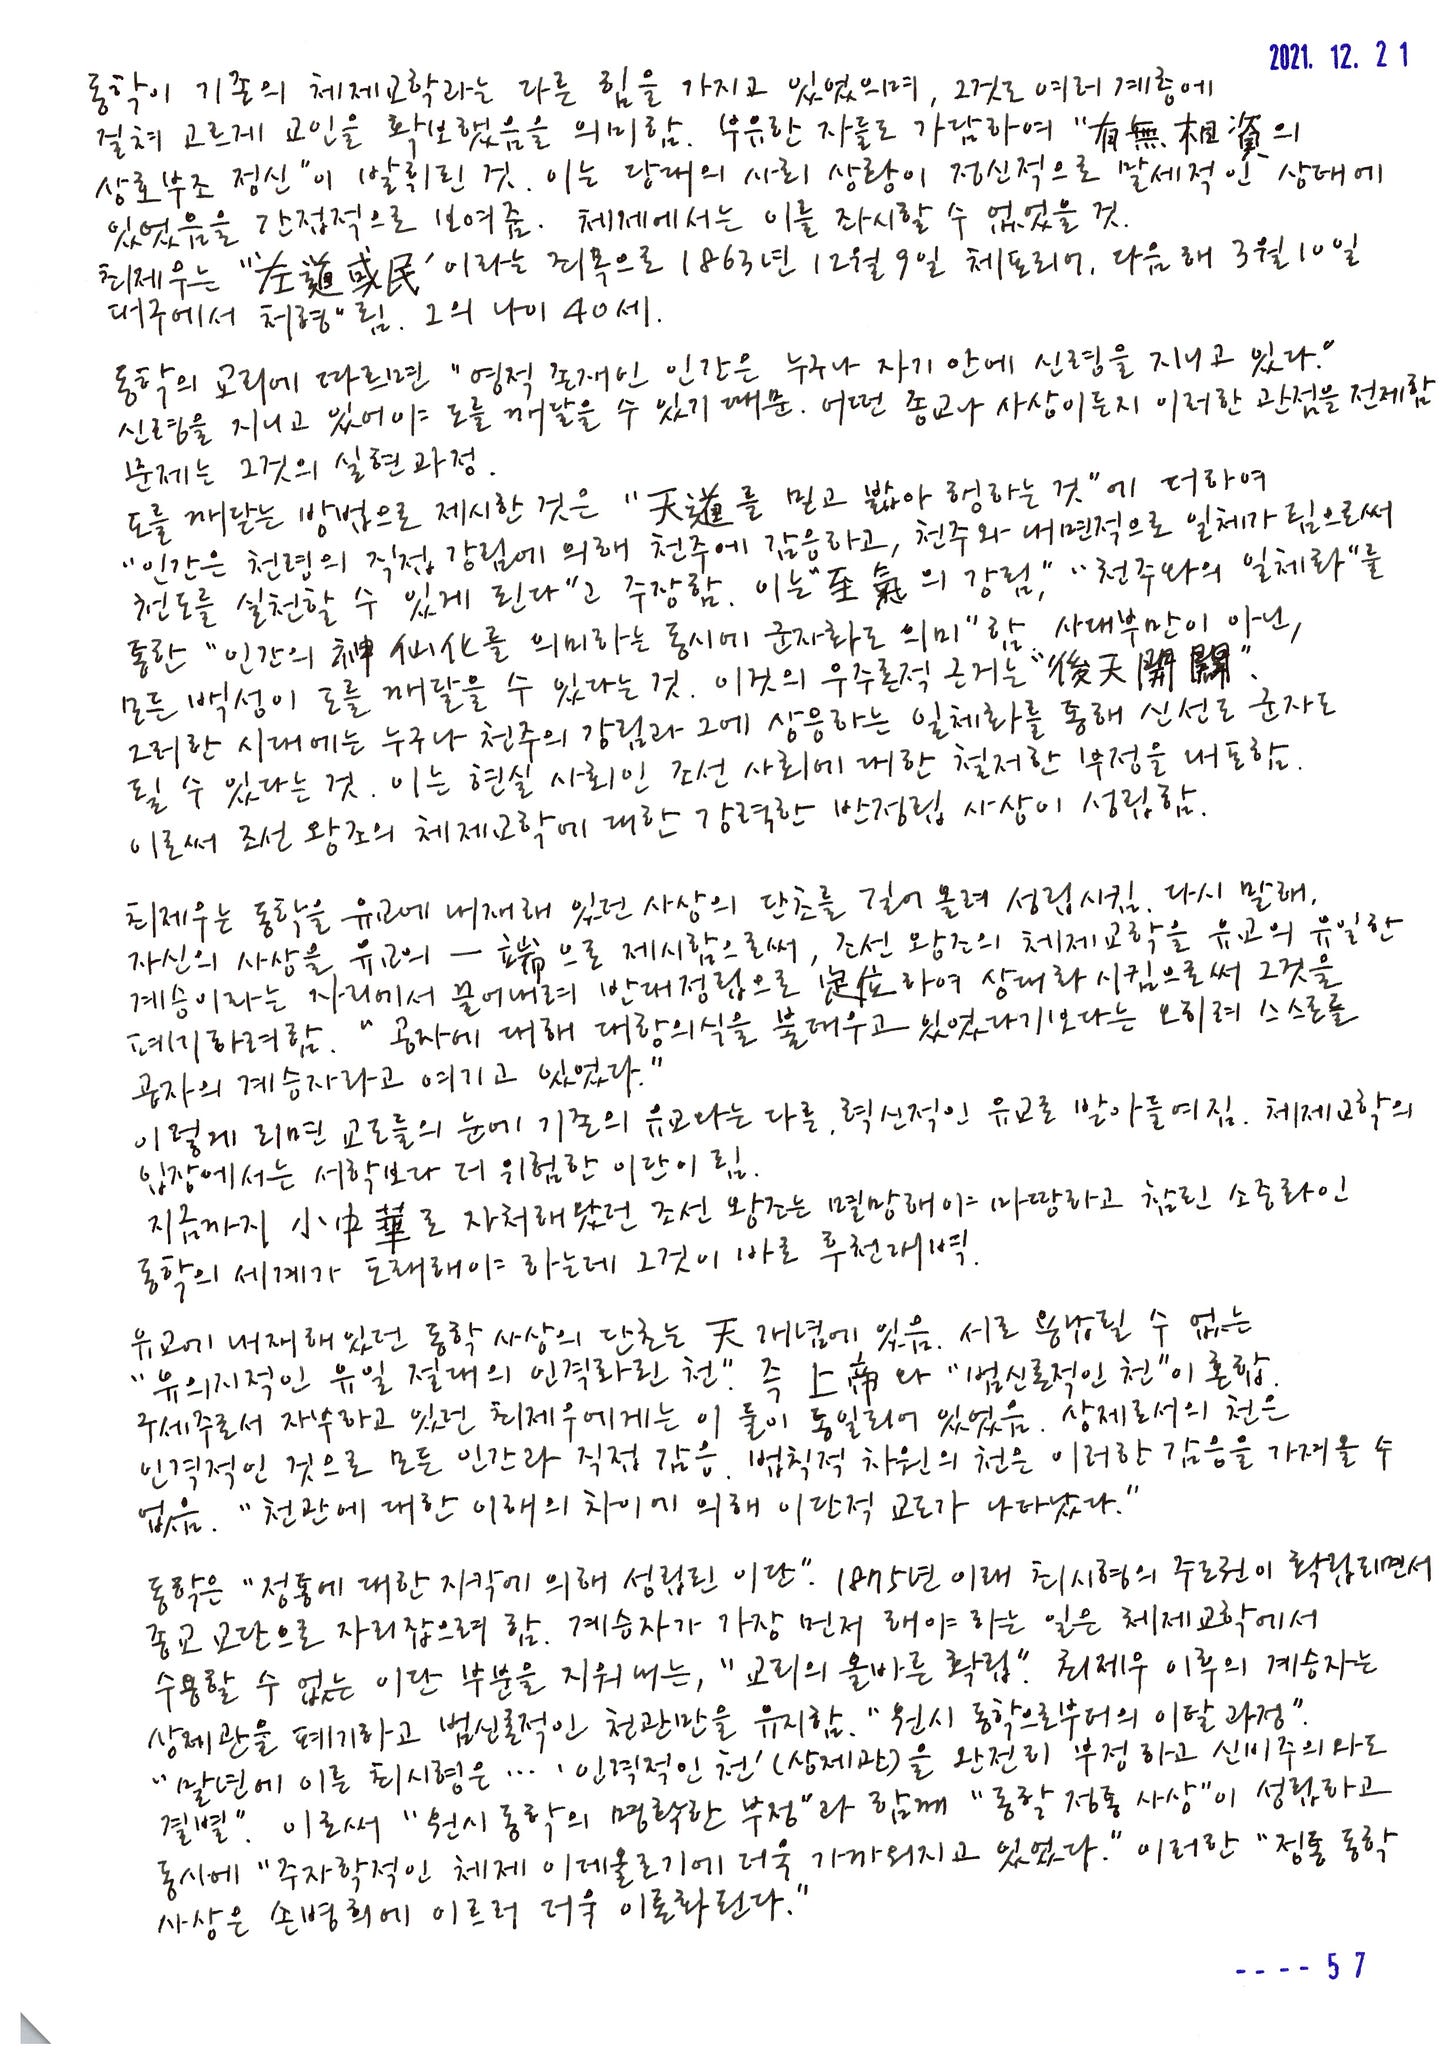 2021. 12. 21
동학이 기존의 체제교학과는 다른 힘을 가지고 있었으며, 그것도 여러 계층에
걸쳐 고르게 교인을 확보했음을 의미함. 부유한 자들도 가담하여 "有無相資의
상호부조 정신"이 발휘된 것. 이는 당대의 사회 상황이 정신적으로 말세적인 상태에
있었음을 간접적으로 보여줌. 체제에서는 이를 좌시할 수 없었을 것.
최제우는 "'左道惑民'이라는 죄목으로 1863년 12월 9일 체포되어, 다음해 3월 10일
대구에서 처형"됨. 그의 나이 40세.
동학의 교리에 따르면 "영적 존재인 인간은 누구나 자기 안에 신령을 지니고 있다."
신령을 지니고 있어야 도를 깨달을 수 있기 때문. 어떤 종교나 사상이든지 이러한 관점을 전제함
문제는 그것의 실현과정.
도를 깨닫는 방법으로 제시한 것은 "天道를 믿고 밟아 행하는 것"에 더하여
"인간은 천령의 직접 강림에 의해 천주에 감응하고, 천주와 내면적으로 일체가 됨으로써
천도를 실천할 수 있게 된다"고 주장함. 이는 "至氣의 강림," "천주와의 일체화"를
통한 "인간의 神仙化를 의미하는 동시에 군자화도 의미"함 사대부만이 아닌,
모든 백성이 도를 깨달을 수 있다는 것. 이것의 우주론적 근거는 "後天開闢".
그러한 시대에는 누구나 천주의 강림과 그에 상응하는 일체화를 통해 신선도 군자도
될 수 있다는 것. 이는 현실 사회인 조선 사회에 대한 철저한 부정을 내포함.
이로써 조선 왕조의 체제교학에 대한 강력한 반정립 사상이 성립함.
최제우는 동학을 유교에 내재해 있던 사상의 단초를 길어 올려 성립시킴. 다시 말해,
자신의 사상을 유교의 一端으로 제시함으로써, 조선 왕조의 체제교학을 유교의 유일한
계승이라는 자리에서 끌어내려 반대정립으로 定位하여 상대화시킴으로써 그것을
폐기하려함. "공자에 대해 대항의식을 불태우고 있었다기보다는 오히려 스스로를
공자의 계승자라고 여기고 있었다."
이렇게 되면 교도들의 눈에 기존의 유교와는 다른, 혁신적인 유교로 받아들여짐. 체제교학의
입장에서는 서학보다 더 위험한 이단이 됨.
지금까지 小中華로 자처해왔던 조선 왕조는 멸망해야 마땅하고 참된 소중화인
동학의 세계가 도래해야 하는데 그것이 바로 후천개벽.
유교에 내재해있던 동학 사상의 단초는 天 개념에 있음. 서로 용납될 수 없는
"유의지적인 유일 절대의 인격화된 천". 즉 上帝와 "범신론적인 천"이 혼합.
구세주로서 자부하고 있던 최제우에게는 이 둘이 통일되어 있었음. 상제로서의 천은
인격적인 것으로 모든 인간과 직접 감응. 법칙적 차원의 천은 이러한 감응을 가져올 수
없음. "천관에 대한 이해의 차이에 의해 이단적 교도가 나타났다."
동학은 "정통에 대한 자각에 의해 성립된 이단". 1875년 이래 최시형의 주도권이 확립되면서
종교 교단으로 자리잡으려 함. 계승자가 가장 먼저 해야 하는 일은 체제교학에서
수용할 수 없는 이단 부분을 지워내는, "교리의 올바른 확립". 최제우 이후의 계승자는
상제관을 폐기하고 범신론적인 천관만을 유지함. "원시 동학으로부터의 이탈 과정".
"말년에 이른 최시형은 … '인격적인 천'(상제관)을 완전히 부정하고 신비주의와도
결별". 이로써 "원시 동학의 명확한 부정"과 함께 "동학 정통 사상"이 성립하고
동시에 "주자학적인 체제 이데올로기에 더욱 가까워지고 있었다." 이러한 "정통 동학
사상은 손병희에 이르러 더욱 이론화된다."
---- 57